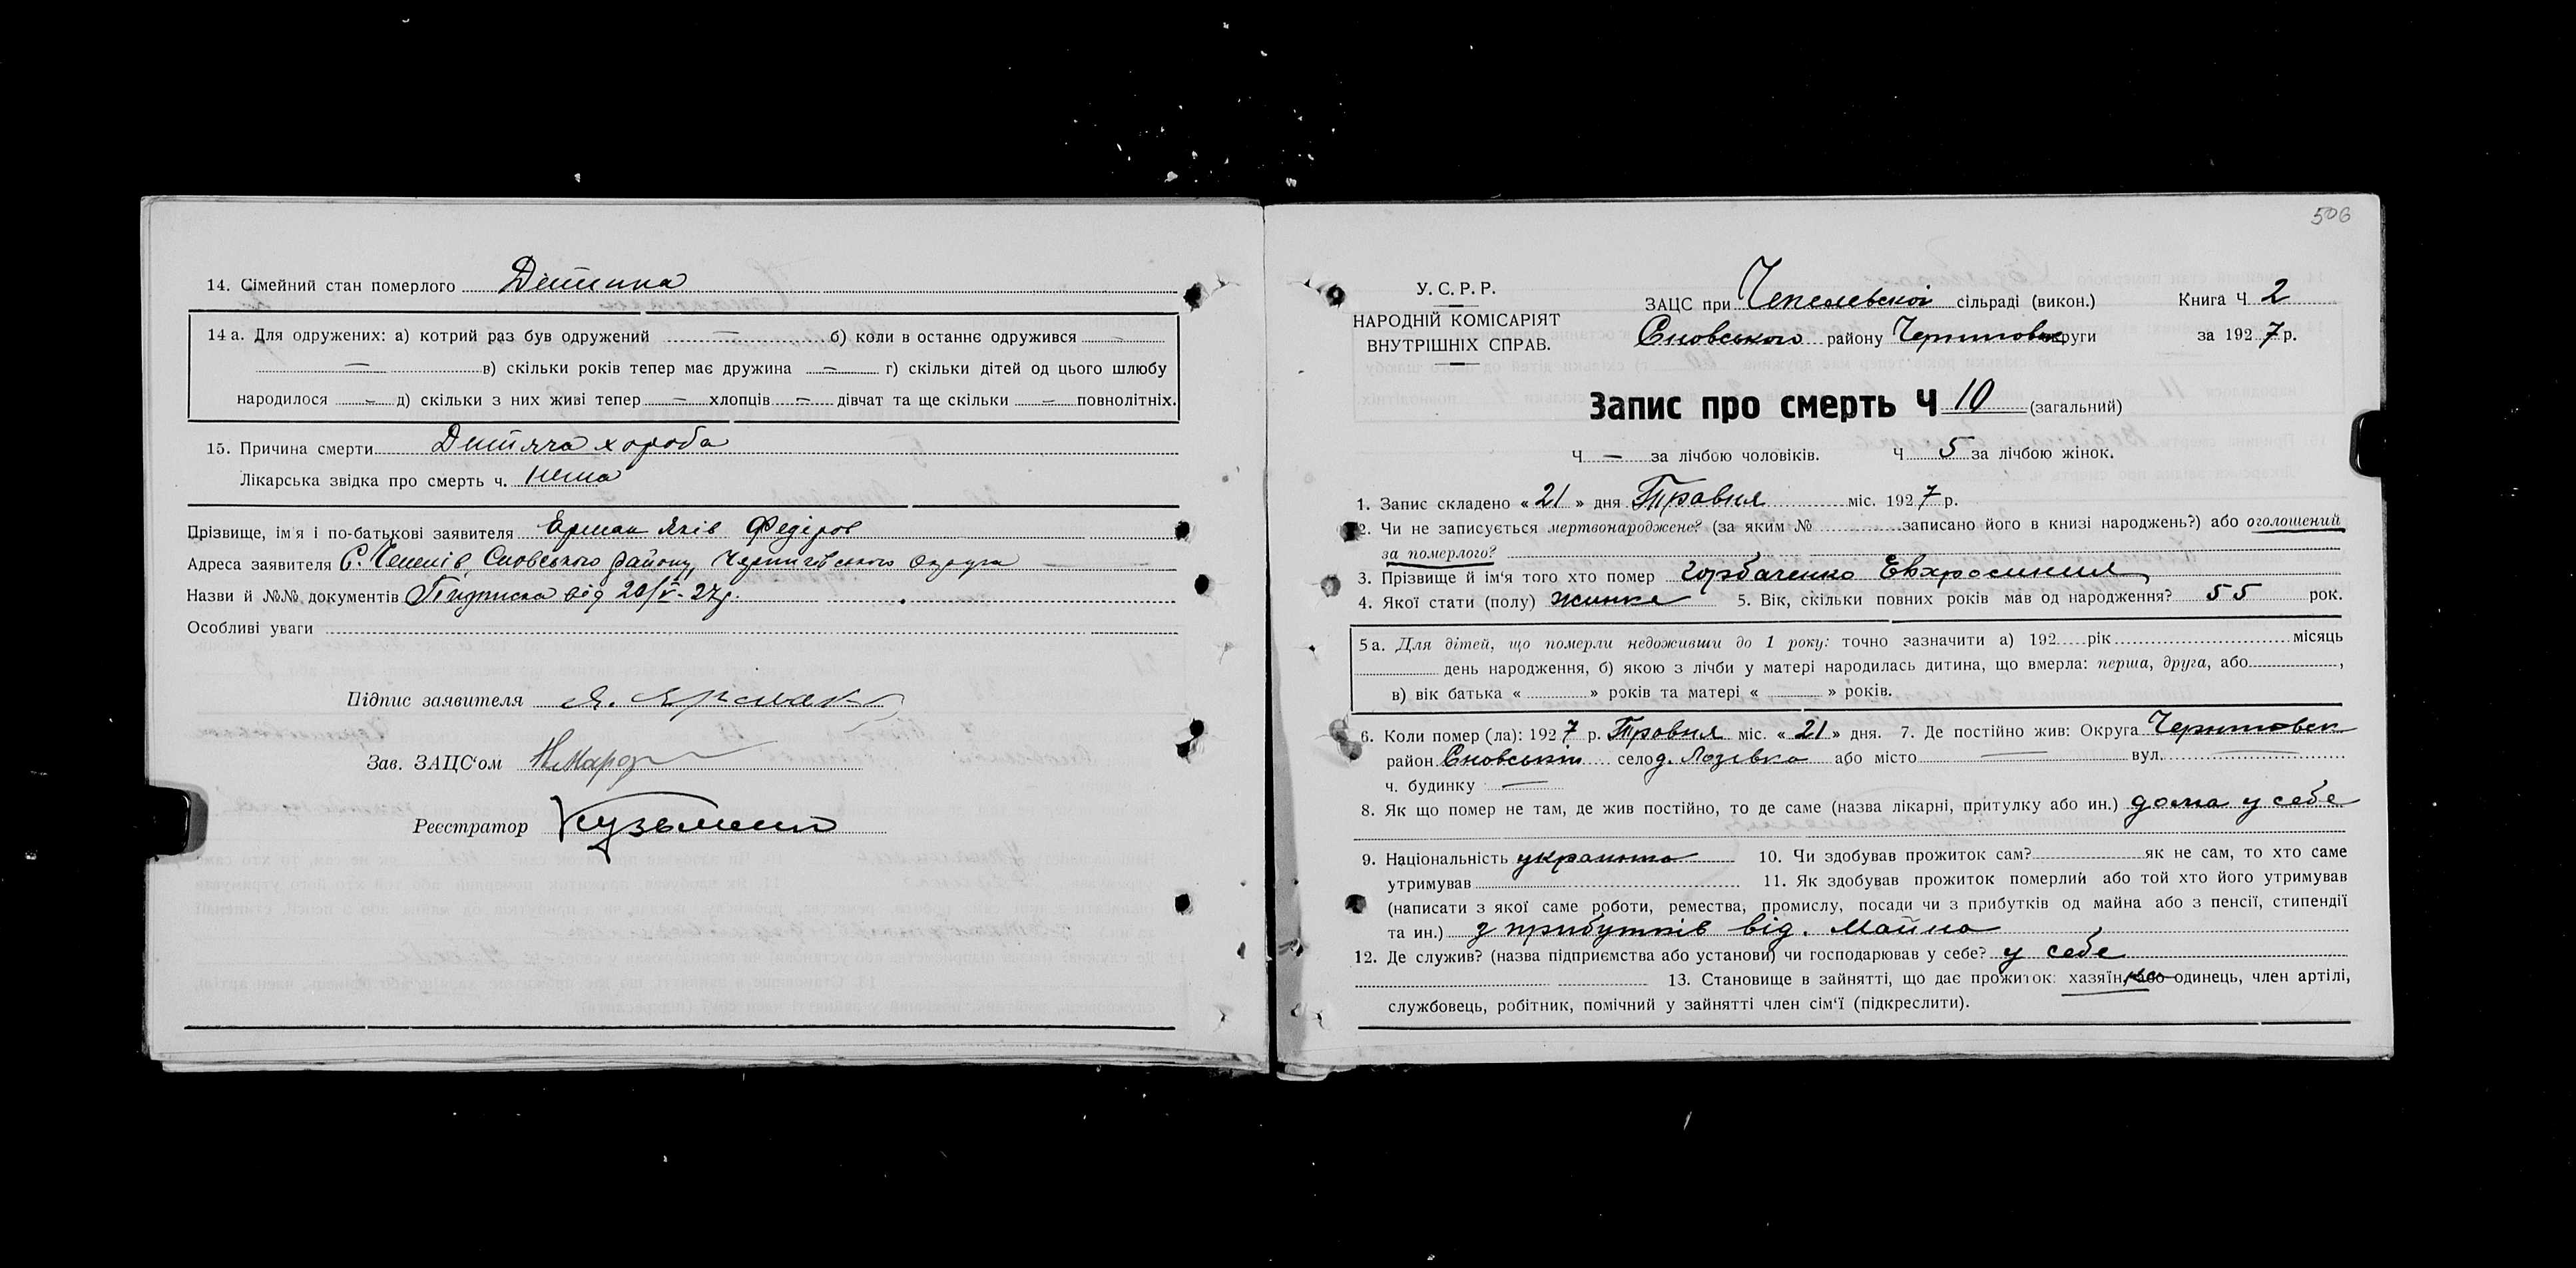 14. Сімейний стан померлого Дитина
14 а. Для одружених: а) котрий раз був одружений — б) коли в останнє одружився —
— в) скільки років тепер має дружина — г) скільки дітей од цього шлюбу
народилося — д) скільки з них живі тепер — хлопців — дівчат та ще скільки — повнолітніх.
15. Причина смерти Дитяча хороба
Лікарська звідка про смерть ч. нема
Прізвище, ім'я і по-батькові заявителя Ермак Яків Федіров
Адреса заявителя С. Чепелів Сновського району, Чернигівського округа
Назви й №№ документів Підписка від 20/V-27р.
Особливі уваги
Підпис заявителя Я. Ярмак
Зав. ЗАЦС'ом
Реєстратор
506
У. С. Р. Р.
НАРОДНІЙ КОМІСАРІЯТ
ВНУТРІШНІХ СПРАВ.
ЗАЦС при Чепелевской сільраді (викон.) Книга Ч 2
Сновського району Черниговск округи за 1927 р.
Запис про смерть Ч 10 (загальний)
Ч — за лічбою чоловіків. Ч 5 за лічбою жінок.
1. Запис складено « 21 » дня Травня міс. 1927 р.
2. Чи не записується мертвонароджене? (за яким № записано його в книзі народжень?) або оголошений
за померлого?
3. Прізвище й ім'я того хто помер Горбаченко Евхросиния
4. Якої стати (полу) жинка 5. Вік, скільки повних років мав од народження? 55 рок.
5 а. Для дітей, що померли недоживши до 1 року: точно зазначити а) 192 рік місяць
день народження, б) якою з лічби у матері народилась дитина, що вмерла: перша, друга, або ,
в) вік батька « » років та матері « » років.
6. Коли помер (ла): 1927 р. Травня міс. « 21 » дня. 7. Де постійно жив: Округа Черниговск
район Сновський село д. Лозівка або місто — вул. —
ч. будинку —
8. Як що помер не там, де жив постійно, то де саме (назва лікарні, притулку або ин.) дома у себе
9. Національність украинка 10. Чи здобував прожиток сам? як не сам, то хто саме
утримував 11. Як здобував прожиток померлий або той хто його утримував
(написати з якої саме роботи, ремества, промислу, посади чи з прибутків од майна або з пенсії, стипендії
та ин.) з прибутків від. майна
12. Де служив? (назва підприємства або установи) чи господарював у себе? у себе
13. Становище в зайнятті, що дає прожиток: хазяїн, або одинець, член артілі,
службовець, робітник, помічний у зайнятті член сім'ї (підкреслити).